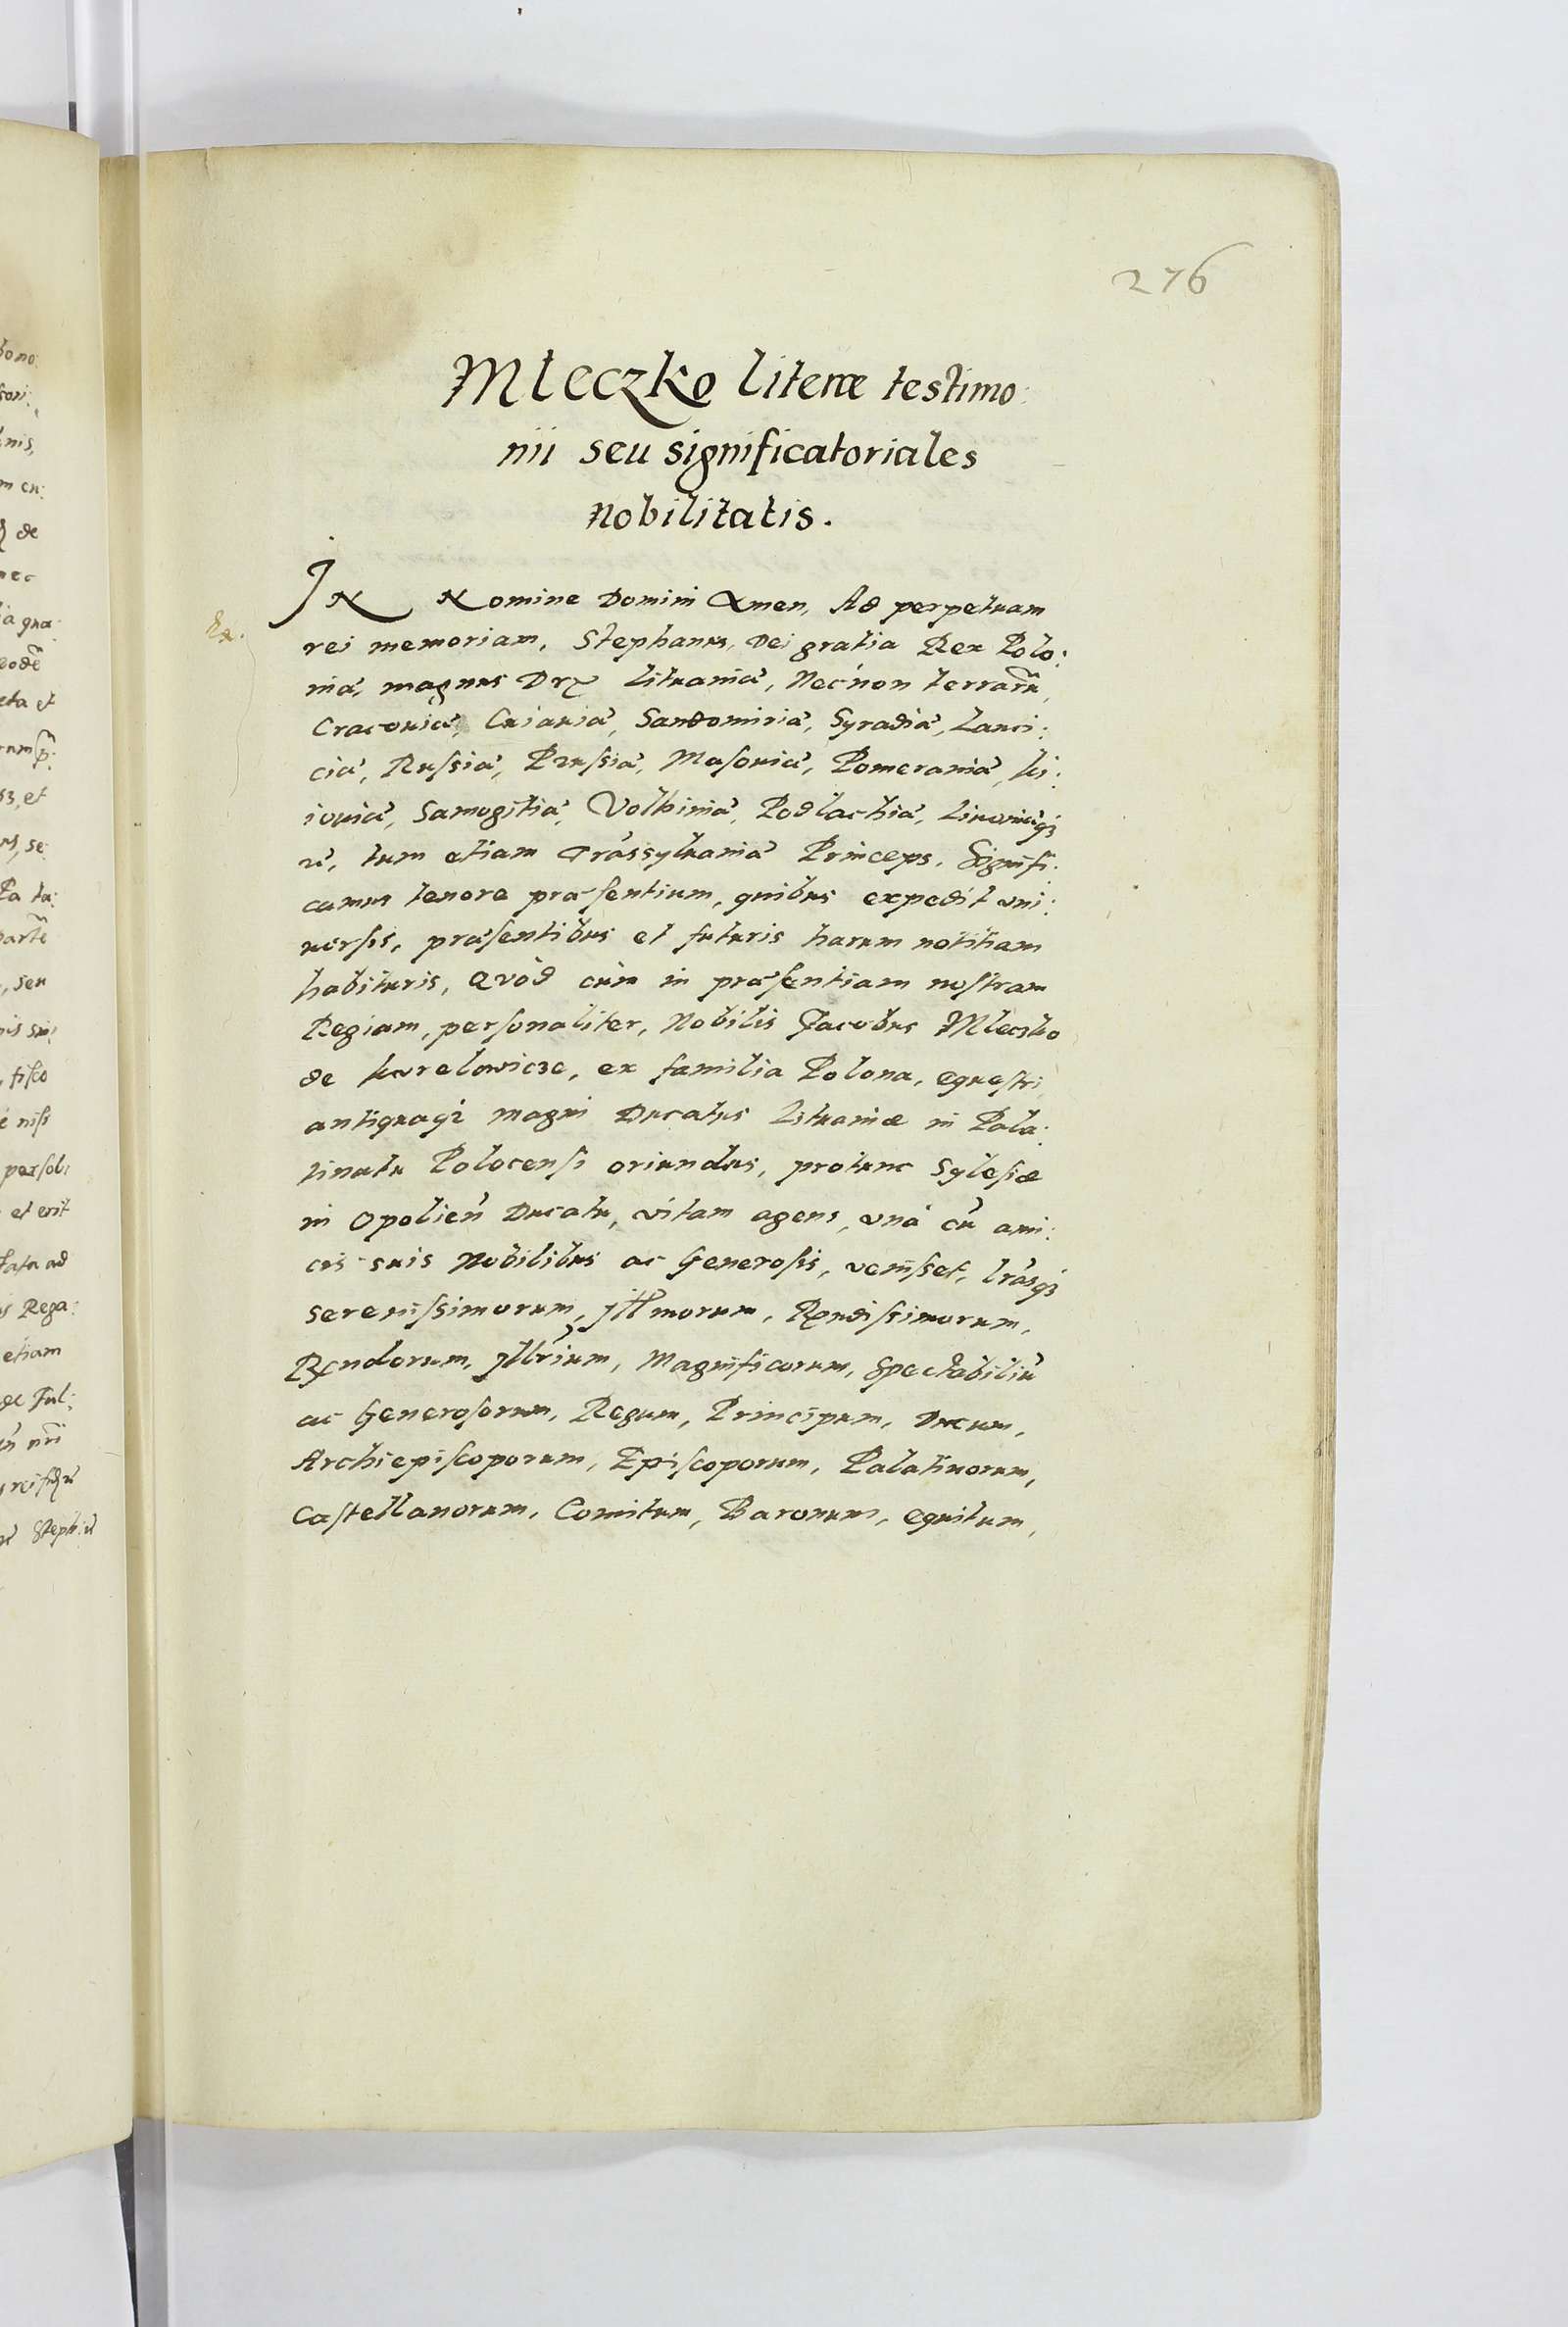 276
Mleczko literæ testimo:
nii seu significatoriales
Nobilitatis.
IN Nomine Domini Amen, Ad perpetuam
rei memoriam, Stephanus, Dei gratia Rex Polo:
niæ, magnus Dux Lituaniæ, Nec non terrarũ,
Cracouiæ, Cuiauiæ, Sandomiriæ, Syradiæ, Lanci:
ciæ, Russiæ, Prussiæ, Masouiæ, Pomeraniæ, Ki:
iouiæ, Samogitiæ, Volhiniæ, Podlachiæ, Liuoniæq3
tum etiam Trãssyluaniæ Princeps. Signifi:
camus tenore præsentium, quibus expedit vni:
uersis, præsentibus et futuris harum notitiam
habituris, Quòd cùm in præsentiam nostram
Regiam, personaliter, Nobilis Jacobus Mleczko
de Kurelowicze, ex familia Polona, equestri,
antiquaq3 magni Ducatus Lituaniæ in Pala:
tinatu Polocensi oriundus, protunc Sylesiæ
in Opolieñ Ducatu, vitam agens, vnà cũ ami:
cis suis Nobilibus ac Generosis, venisset, lrãsq3
Serenissimorum, Jllmorum, Rxndissimorum,
Rxndorum, Jllrium, Magnificorum, Spectabiliũ
ac Generosorum, Regum, Principum, Ducum,
Archiepiscoporum, Episcoporum, Palatinorum,
Castellanorum, Comitum, Baronum, equitum,